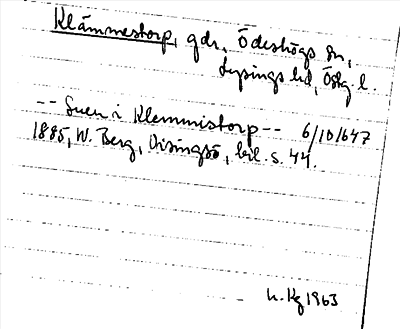 Klämmestorp, gdr, Ödeshögs sn,
Lysings hd, Östg l.
-- Suen i Klemmistorp -- 6/10 1647
1885, W. Berg, Visingsö, bil. s. 44.
Kg 1963